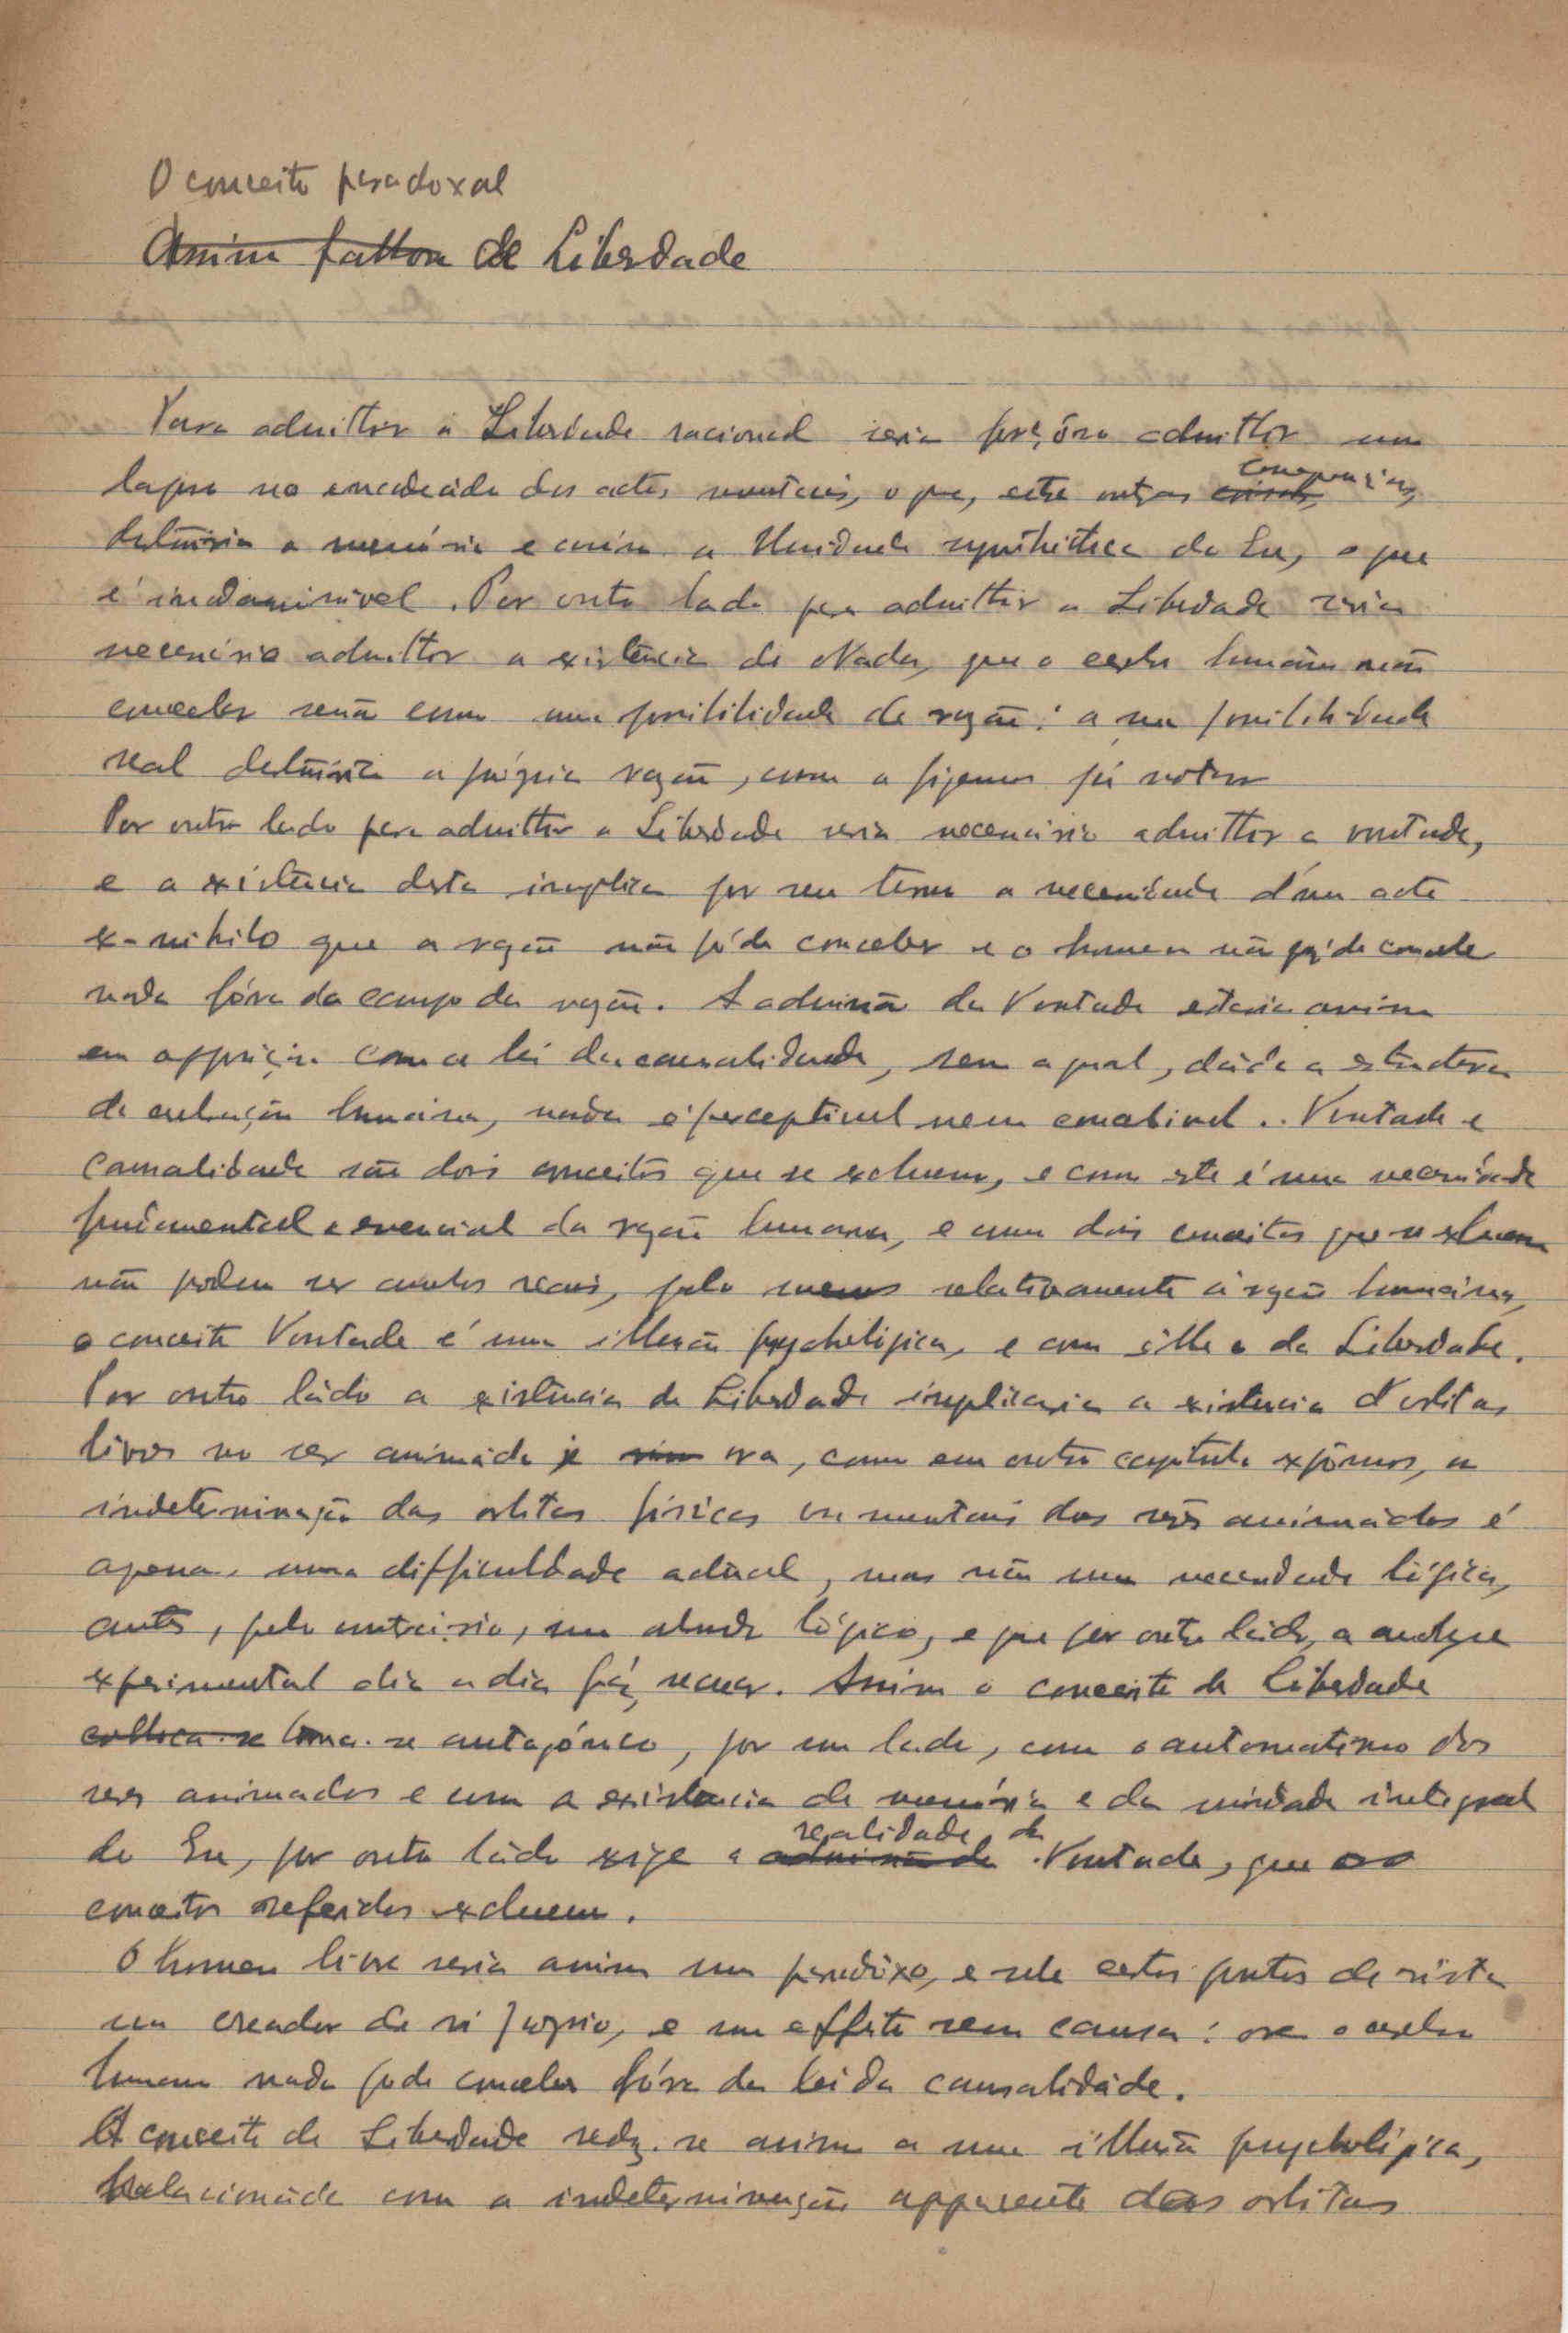 O conceito paradoxal
de Liberdade
Para admittir a Liberdade racional seria forçôso admittir um
lapso no encadeado dos actos mentais, o que, entre outras consequencias,
destruiria a memória e assim a Unidade synthetica do Eu, o que
é inadmissivel. Por outro lado para admittir a Liberdade seria
necessário admittir a existência do Nada, que o cerebro humano não
concebe senão como uma possibilidade da razão: a sua possibilidade
real destruiria a própria razão, como o fizemos já notar
Por outro lado para admittir a Liberdade seria necessário admittir a vontade,
e a existência desta implica por seu turno a necessidade d'um acto
ex-nihilo que a razão não póde conceber e o homem não póde conceber
nada fóra do campo da razão. A admissão da Vontade estaria assim
em opposição com a lei da causalidade, sem a qual, dáda a estructura
da humana, nada é perceptivel nem concebivel.. Vontade e
Causalidade são dois conceitos que se excluem, e como este é uma necessidade
fundamental e essencial da razão humana, e como dois conceitos que se excluem
não podem ser ambos reais, pelo menos relativamente á razão humana,
o conceito Vontade é uma illusão psychologica, e com elle o da Liberdade.
Por outro lado a existência da Liberdade implicaria a existencia d'orbitas
livres no ser animado e ora, como em outro capitulo expômos, a
indeterminação das orbitas fisicas ou mentais dos seres animados é
apenas uma difficuldade actual, mas não uma necessidade lógica,
antes, pelo contrário, um absurdo lógico, e que por outro lado, a analyse
experimental dia a dia fáz recuar. Assim o conceito de Liberdade
torna-se antagónico, por um lado, com o automatismo dos
seres animados e com a existencia da memória e da unidade integral
do Eu, por outro lado exige a realidade da Vontade, que os
conceitos referidos excluem.
O homem livre seria assim um paradoxo, e sob certos pontos de vista
um creador de si proprio, e um effeito sem causa: ora o cerebro
humano nada pode conceber fóra da lei da causalidade.
O conceito de Liberdade reduz-se assim a uma illusão psychologica,
relacionada com a indeterminação apparente das orbitas